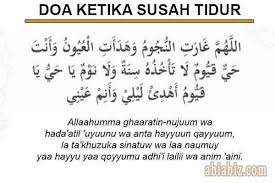 DOA KETIKA SUSAH TIDUR
اَللّٰهُمَّ غَارَتِ النُّجُوْمُ وَهَدَأَتِ الْعُيُوْنُ وَأَنْتَ
حَيٌّ قَيُّوْمٌ لَا تَأْخُذُهُ سِنَةٌ وَلَا نَوْمٌ يَا حَيُّ يَا
قَيُّوْمُ أَهْدِئْ لَيْلِيْ وَأَنِمْ عَيْنِيْ
Allaahumma ghaaratin-nujuum wa
hada'atil 'uyuunu wa anta hayyuun qayyuum,
la ta'khuzuka sinatuw wa laa naumuy
yaa hayyu yaa qoyyumu adhi'i lailii wa anim 'aini.
abiabiz.com